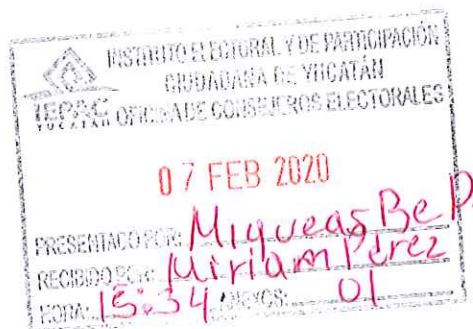 INSTITUTO ELECTORAL Y DE PARTICIPACIÓN
CIUDADANA DE YUCATÁN
IEPAC OFICINA DE CONSEJEROS ELECTORALES
07 FEB 2020
PRESENTADO POR: Miqueas Be P
RECIBIDO POR: Miriam Pérez
HORA: 15:34 ANEXOS: 01